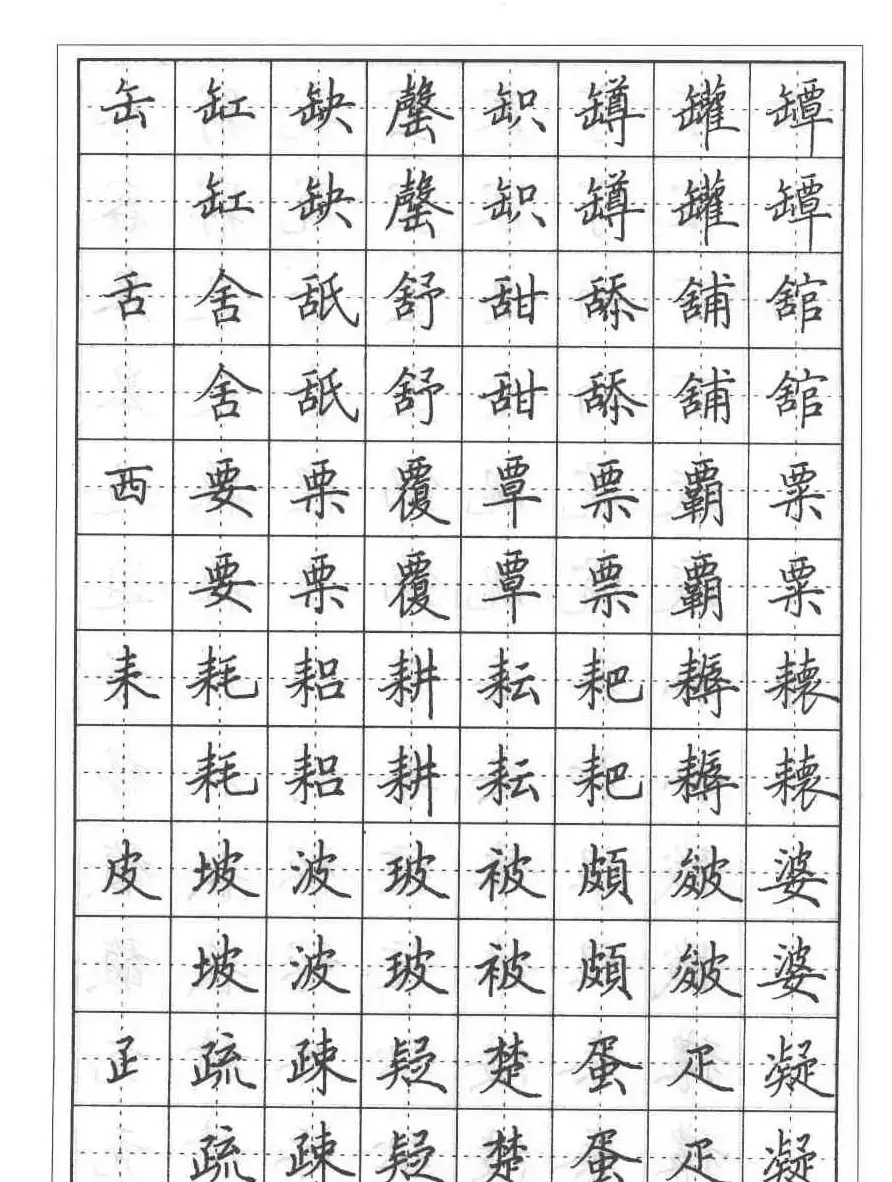 缶缸缺罄𦈢罇罐罈
缸缺罄𦈢罇罐罈
舌舍舐舒甜舔舖舘
舍舐舒甜舔舖舘
西要栗覆覃票覇粟
要栗覆覃票覇粟
耒耗耜耕耘耙耨耲
耗耜耕耘耙耨耲
皮坡波玻被頗皴婆
坡波玻被頗皴婆
疋疏疎疑楚蛋疋凝
疏疎疑楚蛋疋凝